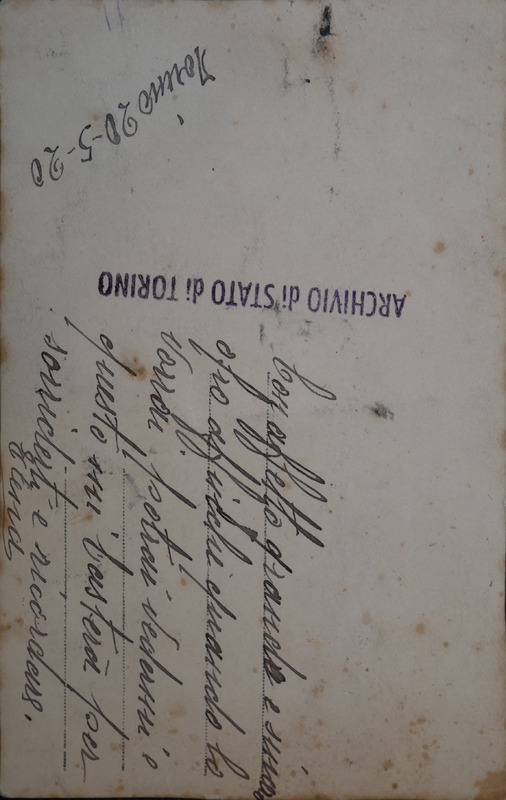 Torino 20-5-20
ARCHIVIO di STATO di TORINO
Con affetto grande e
offro affinchè quando lo
vorrai potrai vedermi e
questo mi basterà per
sorriderti e ricordare.
Elena